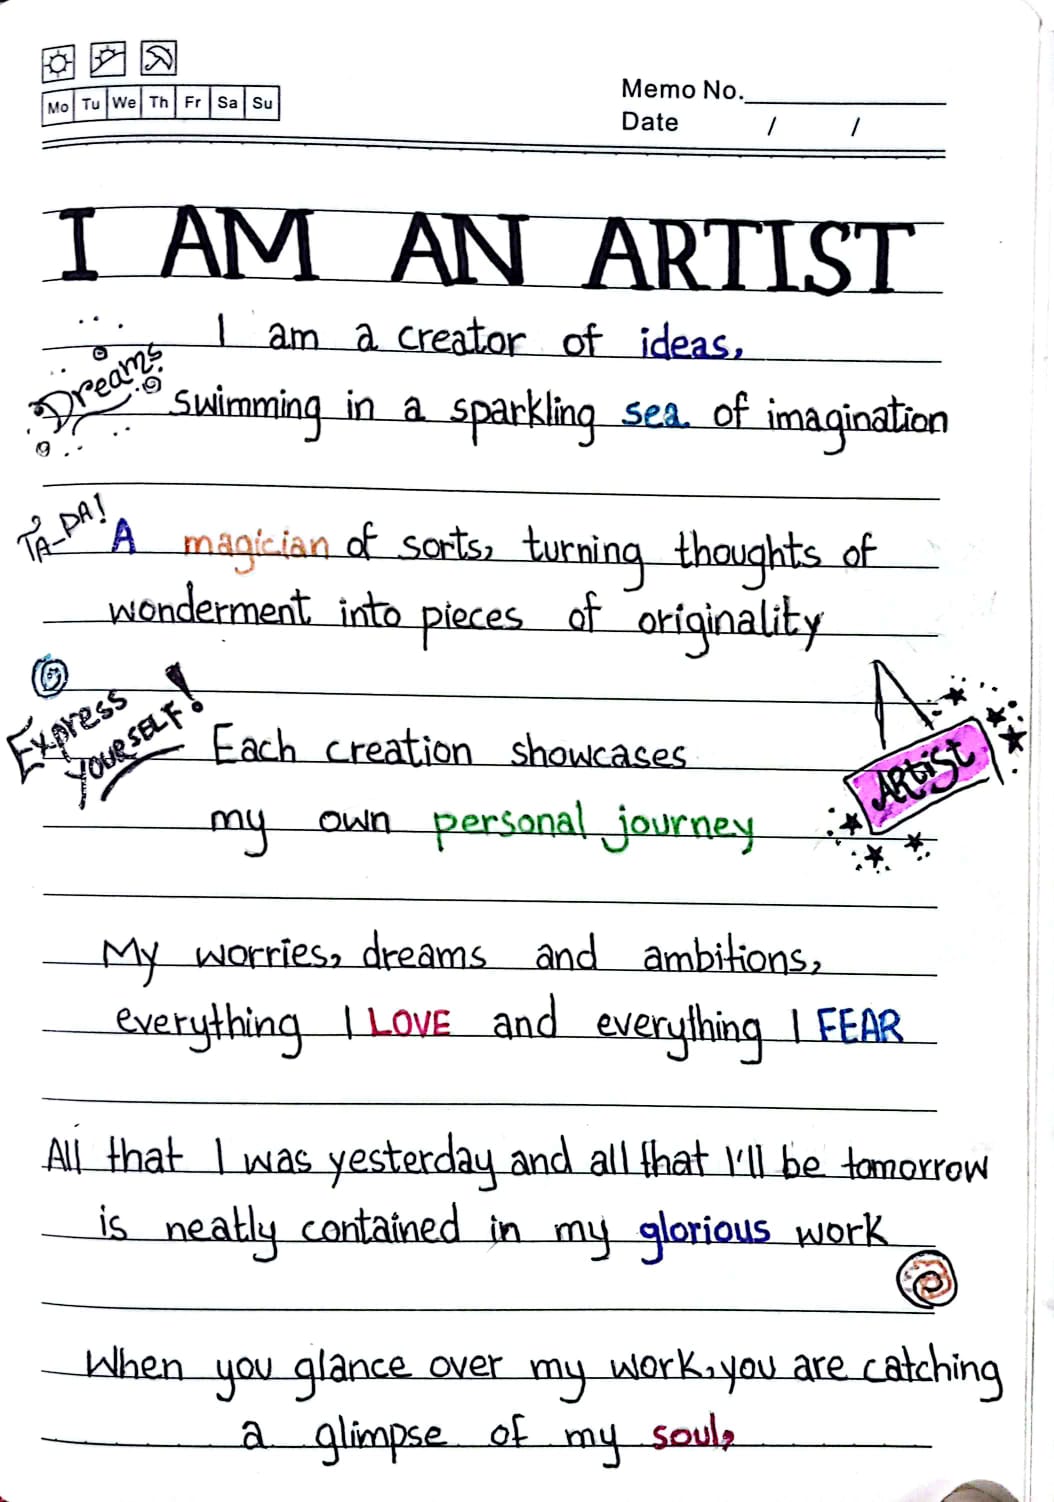 Mo Tu We Th Fr Sa Su
Memo No.
Date / /
I AM AN ARTIST
I am a creator of ideas,
Dreams
swimming in a sparkling sea of imagination
TA-DA!
A magician of sorts, turning thoughts of
wonderment into pieces of originality
Express
YOURSELF!
Each creation showcases
my own personal journey
A
ARtiSt
My worries, dreams and ambitions,
everything I LOVE and everything I FEAR
All that I was yesterday and all that I'll be tomorrow
is neatly contained in my glorious work
When you glance over my work, you are catching
a glimpse of my soul,